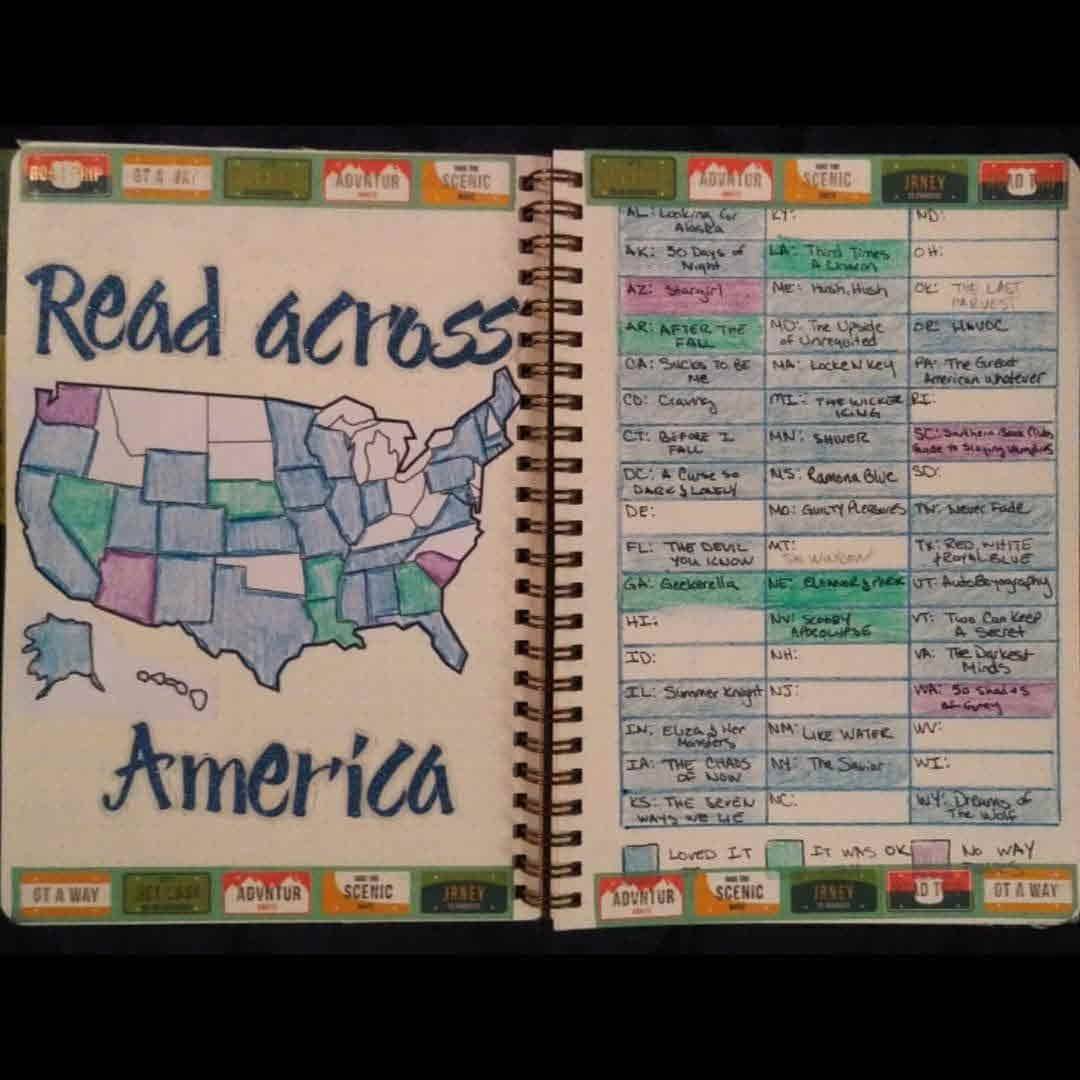 ROAD TRIP
GT A WAY
ADVNTUR
TAKE THE
SCENIC
ROUTE
Read across
America
GT A WAY
ADVNTUR
TAKE THE
SCENIC
ROUTE
JRNEY
ADVNTUR
TAKE THE
SCENIC
ROUTE
JRNEY
AD T
AL: Looking for
Alaska
AK: 30 Days of
Night
AZ: Stargirl
AR: AFTER THE
FALL
CA: SUCKS TO BE
ME
CO: Craving
CT: BEFORE I
FALL
DC: A Curse So
DARK & LONELY
DE:
FL: THE DEVIL
YOU KNOW
GA: Geekerella
HI:
ID:
IL: Summer Knight
IN: Eliza & Her
Monsters
IA: THE CHAOS
OF NOW
KS: THE SEVEN
WAYS WE LIE
KY:
LA: Third Times
A Charm
ME: Hush, Hush
MD: The Upside
of Unrequited
MA: Locke N Key
MI: THE WICKER
KING
MN: SHIVER
MS: Ramona Blue
MO: GUILTY PLEASURES
MT:
NE: ELEANOR & PARK
NV: SCOOBY
APOCOLYPSE
NH:
NJ:
NM: LIKE WATER
NY: The Savior
NC:
ND:
OH:
OK: THE LAST
HARVEST
OR: HAVOC
PA: The Great
American Whatever
RI:
SC: Southern Book Clubs
Guide to Slaying Vampires
SD:
TN: Never Fade
TX: RED, WHITE
& ROYAL BLUE
UT: Autoboyography
VT: Two Can Keep
A Secret
VA: The Darkest
Minds
WA: 50 Shades
of Grey
WV:
WI:
WY: Dreams of
The Wolf
LOVED IT
IT WAS OK
NO WAY
ADVNTUR
TAKE THE
SCENIC
ROUTE
JRNEY
AD T
GT A WAY